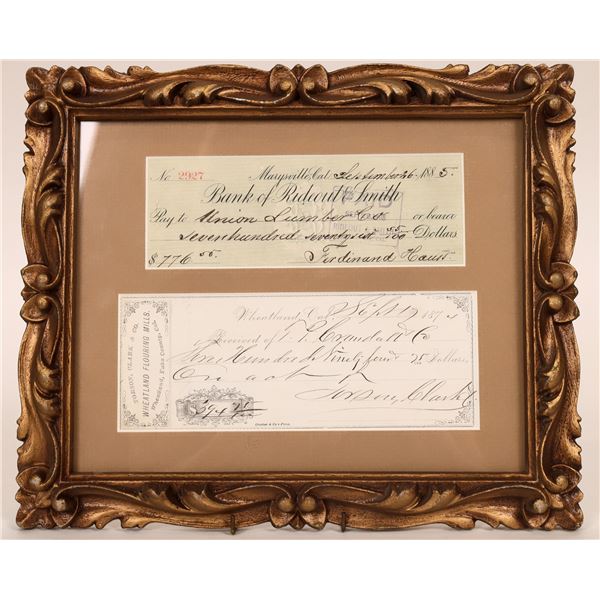 No 2927 Marysville, Cal. September 26 1885.
Bank of Rideout & Smith
Pay to Union Lumber Co or bearer
Seven hundred seventy six 55/100 Dollars
$776 55. Ferdinand Hauss
TORSON, CLARK & CO.
WHEATLAND FLOURING MILLS.
Wheatland, Yuba County, Cal.
Wheatland, Cal. Sept 19 187
Received of & Co
Hundred Ninety four 25 Dollars
On act
Clark
$